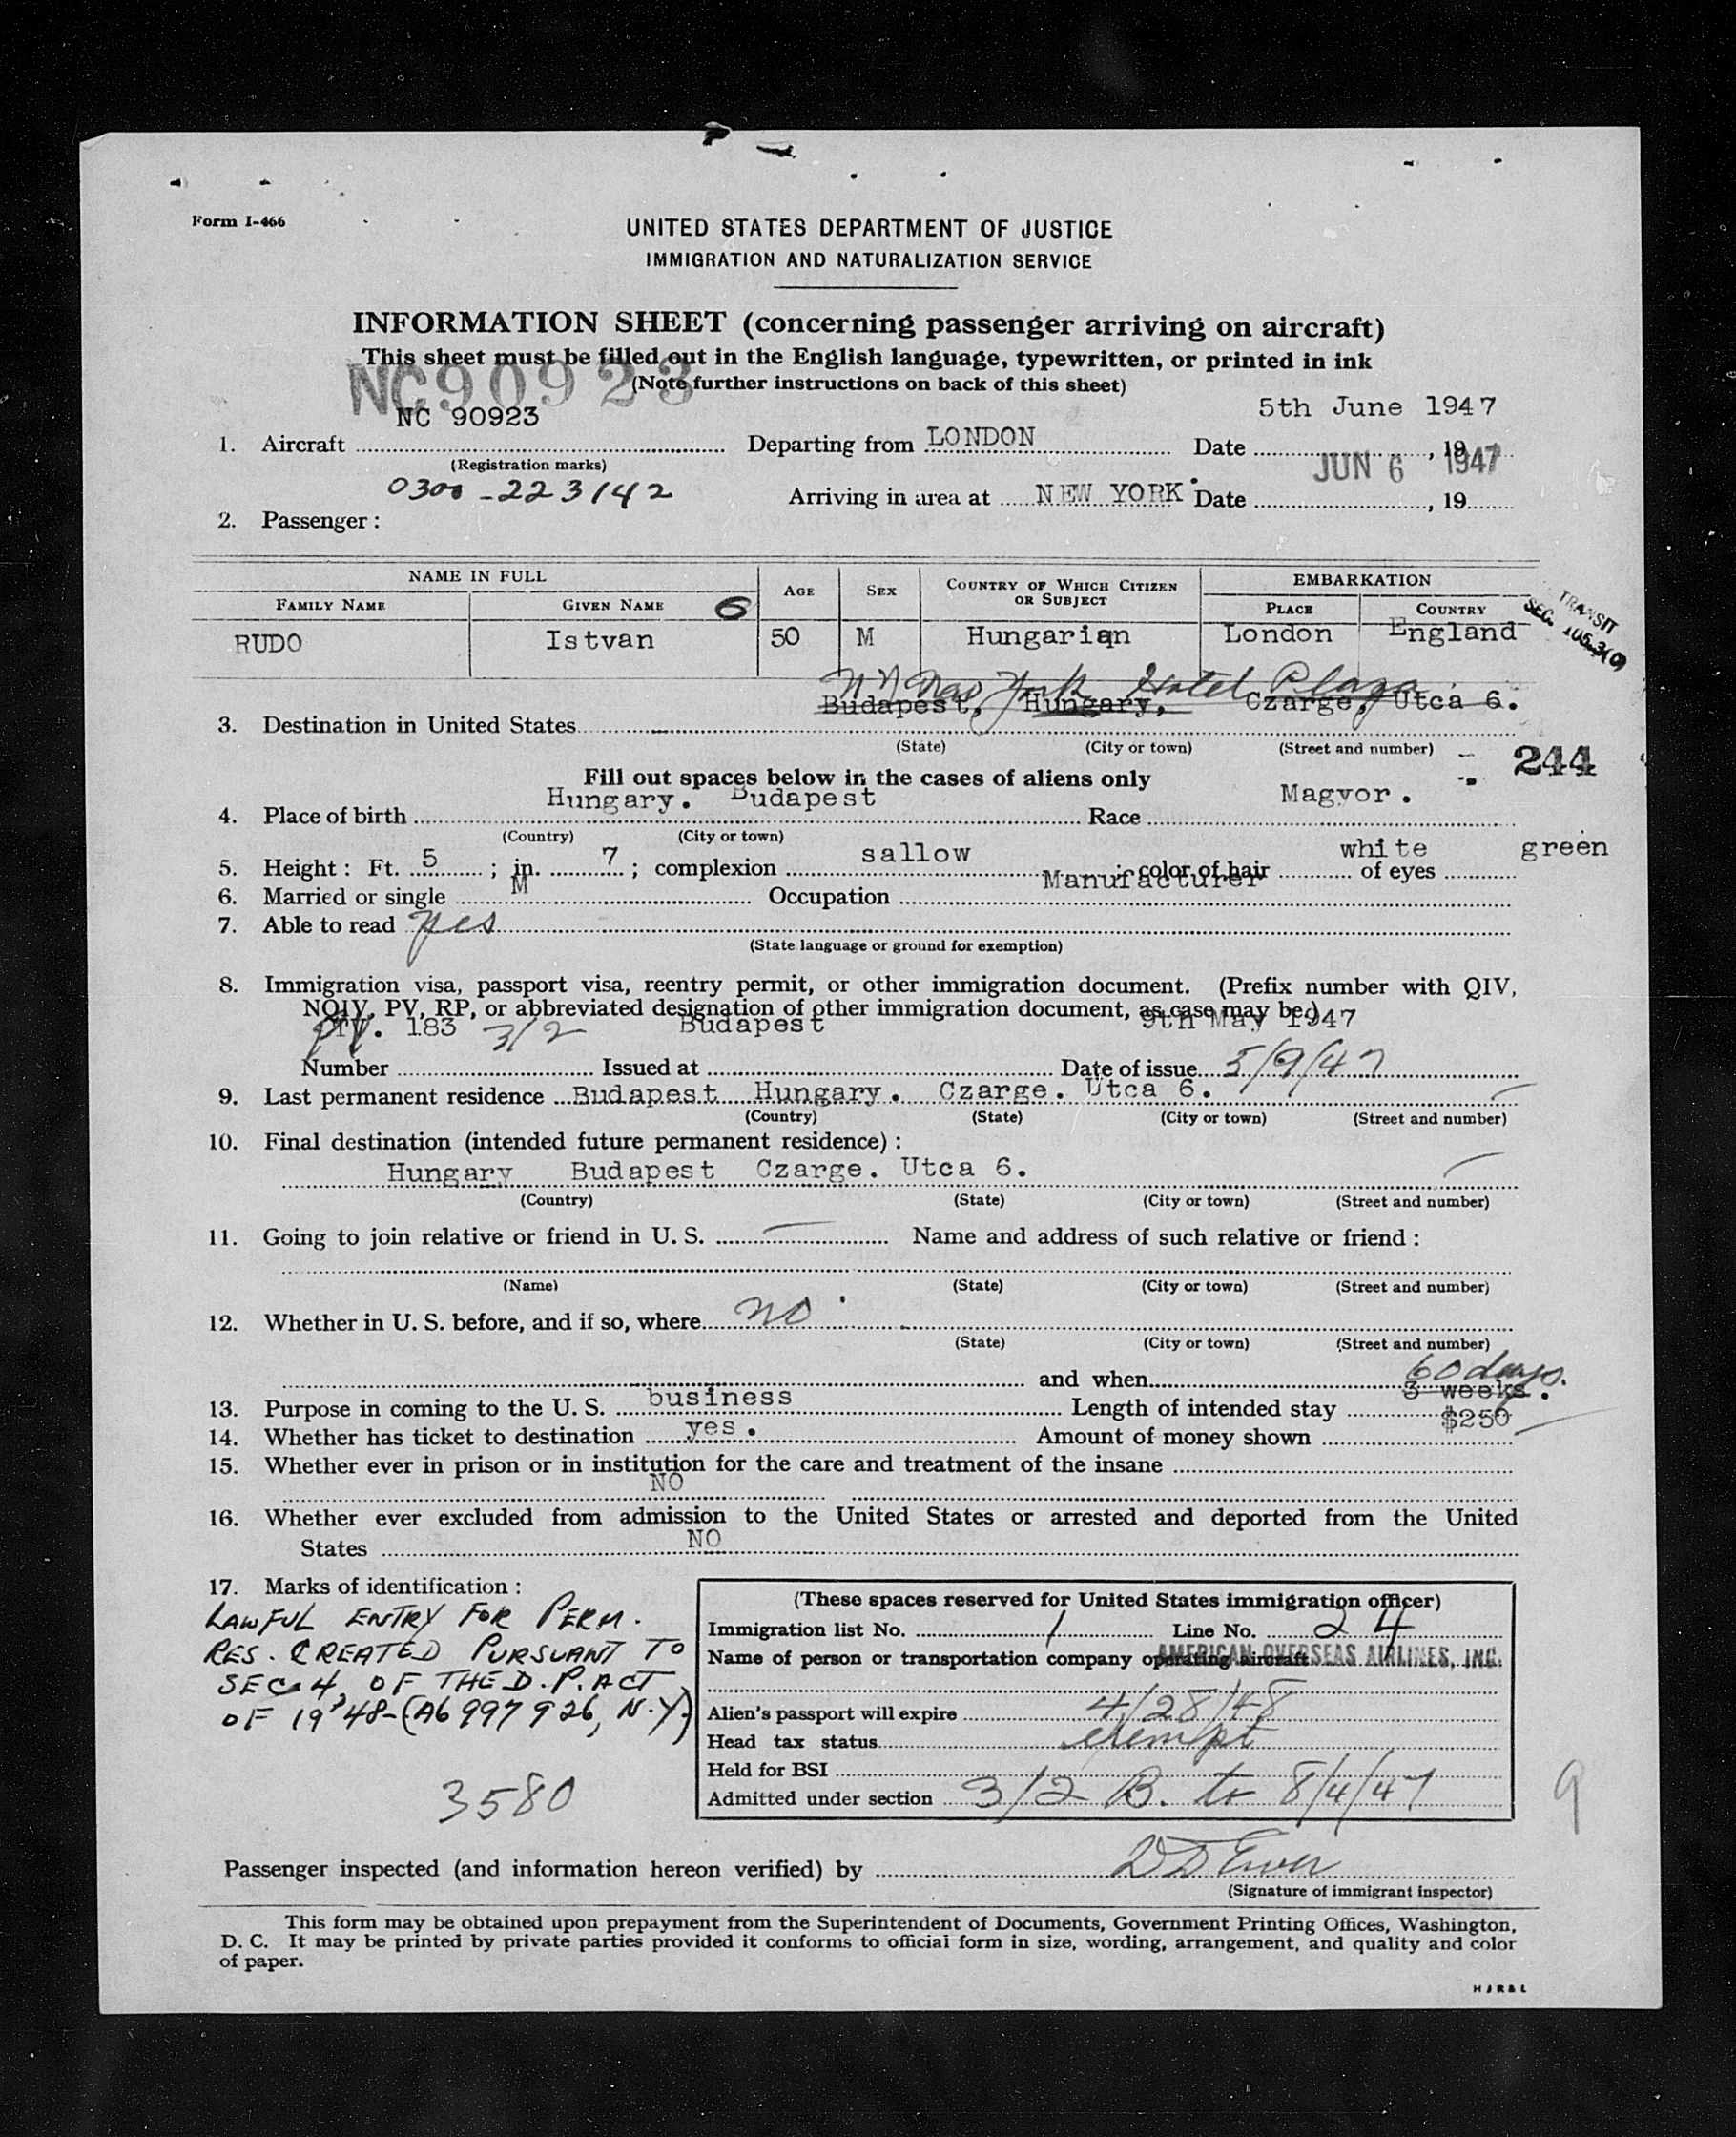 Form I-466
UNITED STATES DEPARTMENT OF JUSTICE
IMMIGRATION AND NATURALIZATION SERVICE
INFORMATION SHEET (concerning passenger arriving on aircraft)
This sheet must be filled out in the English language, typewritten, or printed in ink
(Note further instructions on back of this sheet)
NC90923
NC 90923 5th June 1947
1. Aircraft Departing from LONDON Date , 19
(Registration marks) JUN 6 1947
0300-223142 Arriving in area at NEW YORK Date , 19
2. Passenger:
NAME IN FULL AGE SEX COUNTRY OF WHICH CITIZEN OR SUBJECT EMBARKATION
FAMILY NAME GIVEN NAME 6 PLACE COUNTRY
RUDO Istvan 50 M Hungarian London England
TRANSIT
SEC. 105.3(0)
NY New York Hotel Plaza
Budapest, Hungary, Czarge, Utca 6.
3. Destination in United States
(State) (City or town) (Street and number)
244
Fill out spaces below in the cases of aliens only
Hungary. Budapest Magvor.
4. Place of birth Race
(Country) (City or town)
5. Height: Ft. 5 ; in. 7 ; complexion sallow ; color of hair white of eyes green
6. Married or single M Occupation Manufacturer
7. Able to read yes
(State language or ground for exemption)
8. Immigration visa, passport visa, reentry permit, or other immigration document. (Prefix number with QIV,
NQIV, PV, RP, or abbreviated designation of other immigration document, as case may be.)
183 3/2 Budapest 9th May 1947
Number Issued at Date of issue 5/9/47
9. Last permanent residence Budapest Hungary. Czarge. Utca 6.
(Country) (State) (City or town) (Street and number)
10. Final destination (intended future permanent residence):
Hungary Budapest Czarge. Utca 6.
(Country) (State) (City or town) (Street and number)
11. Going to join relative or friend in U. S. Name and address of such relative or friend:
(Name) (State) (City or town) (Street and number)
12. Whether in U. S. before, and if so, where no
(State) (City or town) (Street and number)
and when 60 days.
3 weeks.
13. Purpose in coming to the U. S. business Length of intended stay
14. Whether has ticket to destination yes. Amount of money shown $250
15. Whether ever in prison or in institution for the care and treatment of the insane
NO
16. Whether ever excluded from admission to the United States or arrested and deported from the United
States NO
17. Marks of identification:
LAWFUL ENTRY FOR PERM.
RES. CREATED PURSUANT TO
SEC 4 OF THE D.P. ACT
OF 1948-(A6 997 926, N.Y)
3580
(These spaces reserved for United States immigration officer)
Immigration list No. 1 Line No. 24
Name of person or transportation company operating aircraft AMERICAN OVERSEAS AIRLINES, INC.
Alien's passport will expire 4/28/48
Head tax status exempt
Held for BSI
Admitted under section 3/2 B. to 8/4/47
9
Passenger inspected (and information hereon verified) by
(Signature of immigrant inspector)
This form may be obtained upon prepayment from the Superintendent of Documents, Government Printing Offices, Washington,
D. C. It may be printed by private parties provided it conforms to official form in size, wording, arrangement, and quality and color
of paper.